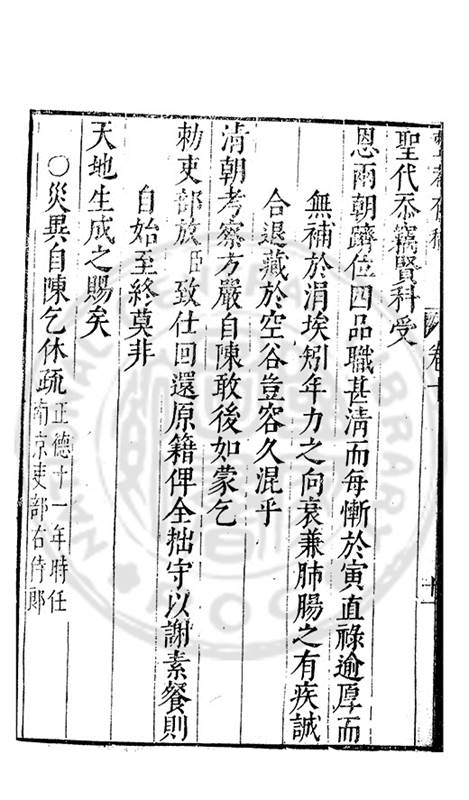 卷一
聖代忝竊賢科受
恩兩朝躋位四品職甚清而每慚於寅直祿逾厚而
無補於涓埃矧年力之向衰兼肺腸之有疾誠
合退藏於空谷豈容久混乎
清朝考察方嚴自陳敢後如蒙乞
勑吏部放臣致仕回還原籍俾全拙守以謝素餐則
自始至終莫非
天地生成之賜矣
○災異自陳乞休疏正德十一年時任
南京吏部右侍郎